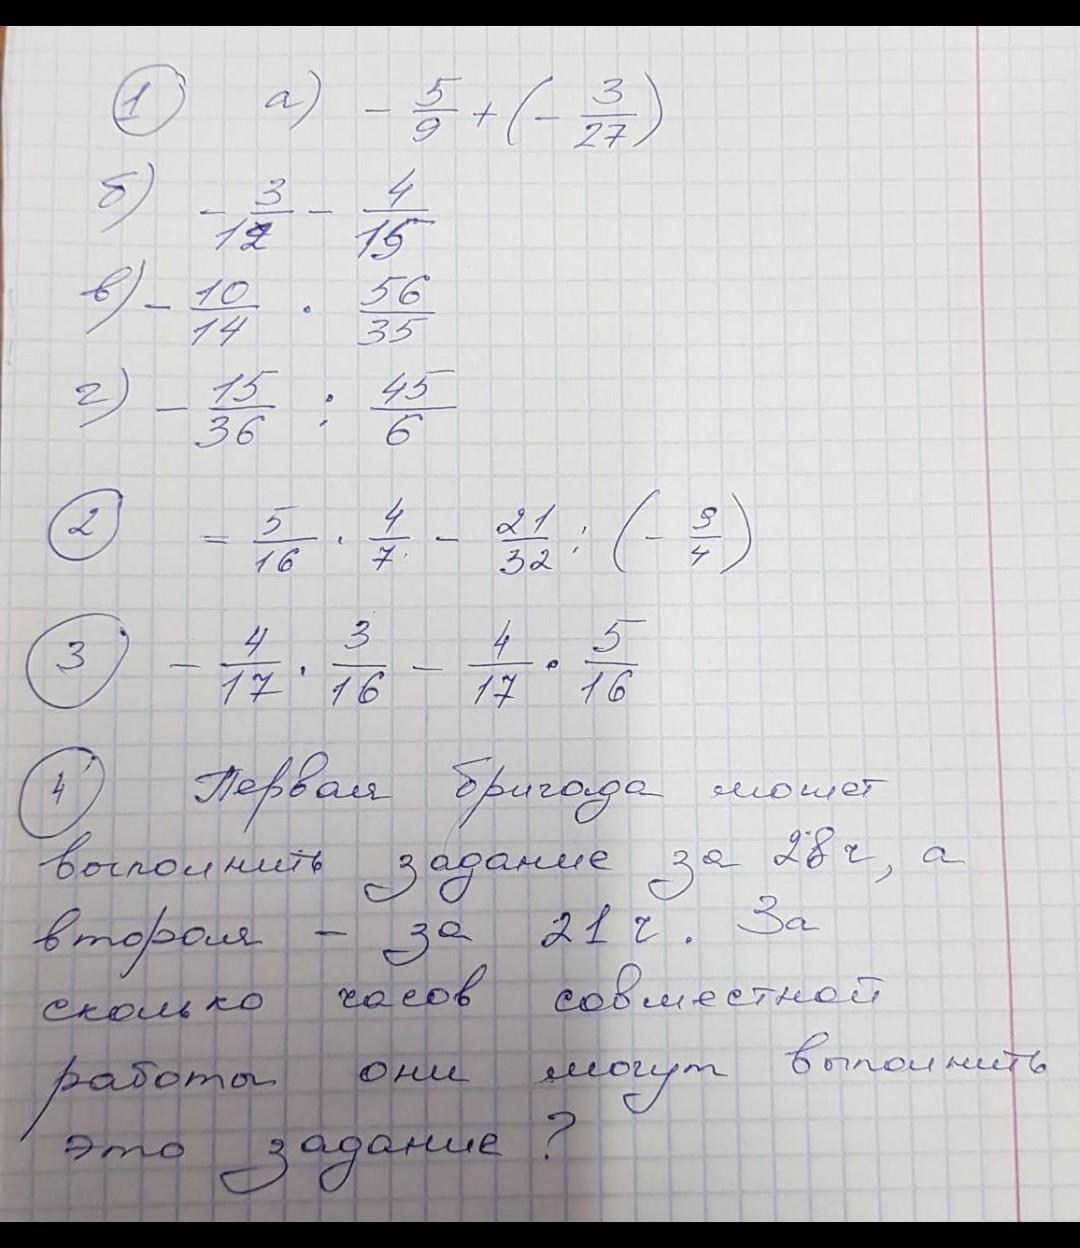 1 а) - 5/9 + (- 3/27)
б) - 3/12 - 4/15
в) - 10/14 · 56/35
г) - 15/36 : 45/6
2 = 5/16 · 4/7 - 21/32 : (- 9/4)
3 - 4/17 · 3/16 - 4/17 · 5/16
4 Первая бригада может
выполнить задание за 28 ч, а
вторая - за 21 ч. За
сколько часов совместной
работы они могут выполнить
это задание?